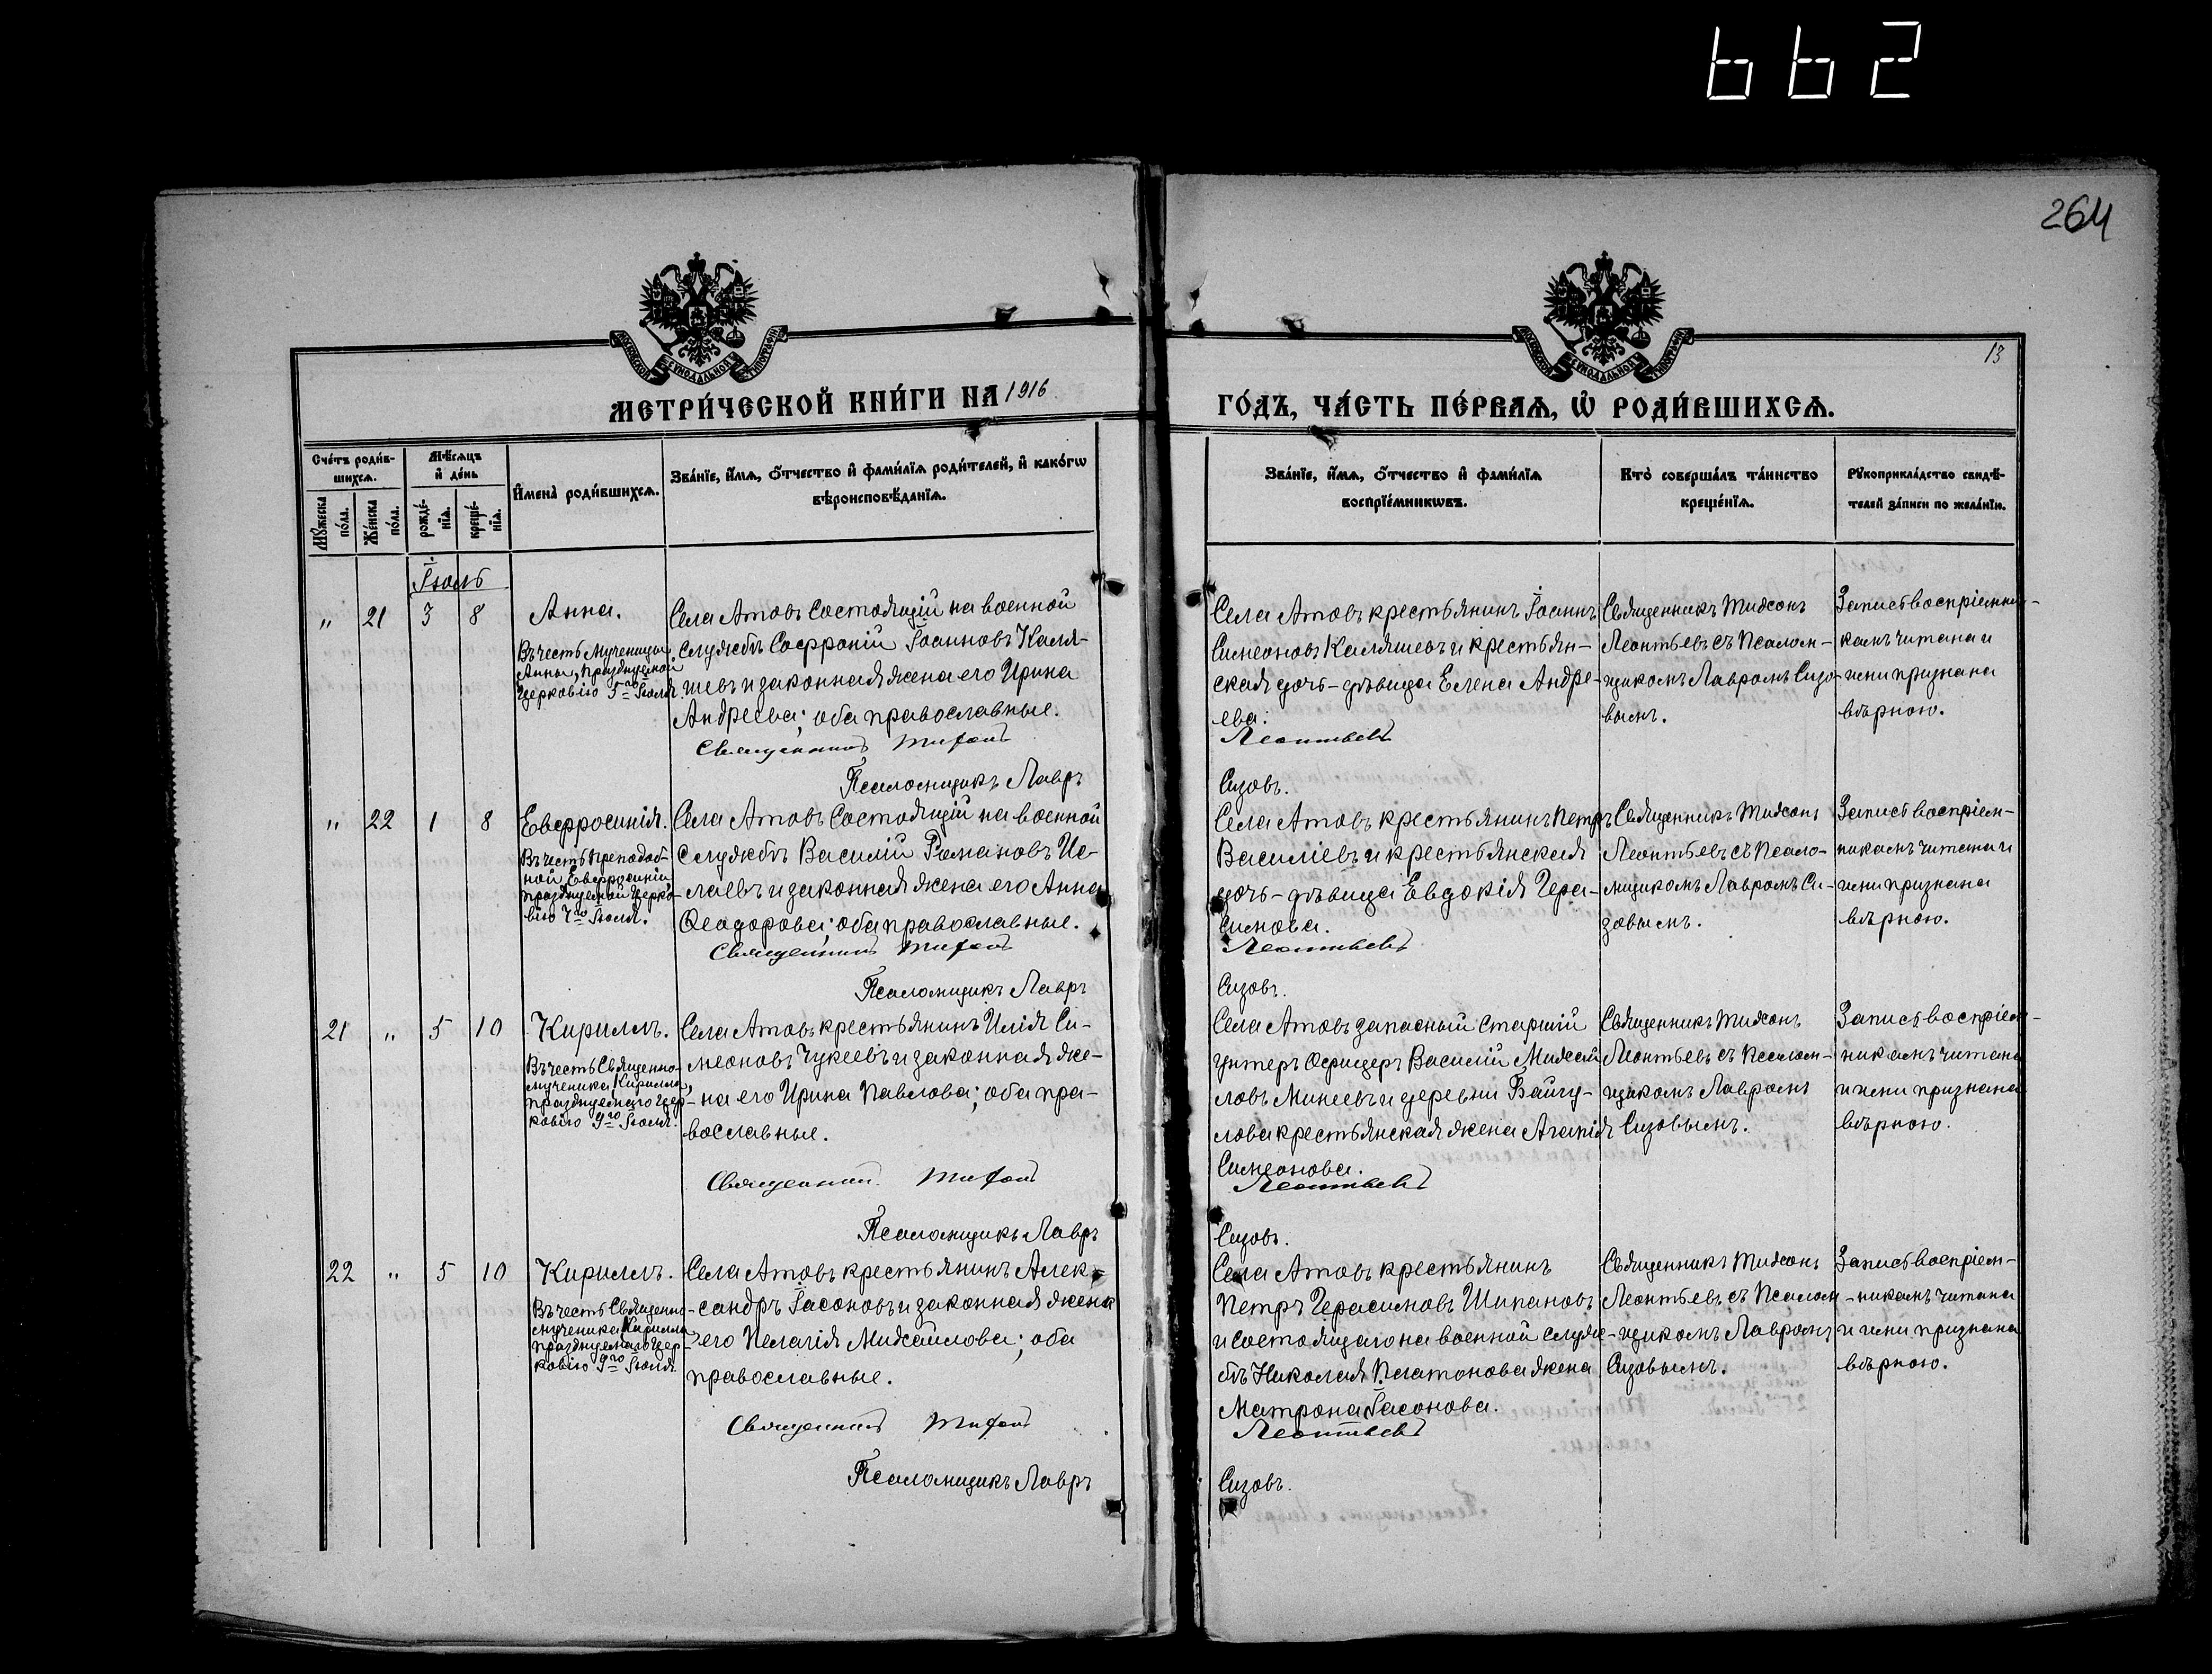 662
264
13
МОСКОВСКОЙ СѴНОДАЛЬНОЙ ТИПОГРАФІИ
МОСКОВСКОЙ СѴНОДАЛЬНОЙ ТИПОГРАФІИ
МЕТРИ́ЧЕСКОЙ КНИ́ГИ НА 1916
ГО́ДЪ, ЧА́СТЬ ПЕ́РВАѦ, Ѡ҆ РОДИ́ВШИХСѦ.
Сче́тъ роди́в-
шихсѧ.
Мѣ́сѧцъ
и҆ де́нь
Мꙋ́жеска
по́ла.
Же́нска
по́ла.
рожде́-
нїѧ.
креще́-
нїѧ.
И҆мена̀ роди́вшихсѧ.
Зва́нїе, и҆́мѧ, ѻ҆́тчество и҆ фами́лїѧ роди́телей, и҆ како́гѡ
вѣроисповѣ́данїѧ.
Зва́нїе, и҆́мѧ, ѻ҆́тчество и҆ фами́лїѧ
воспрїе́мникѡвъ.
Кто̀ соверша́лъ та́инство
креще́нїѧ.
Рꙋкоприкла́дство свидѣ́-
телей за́писи по жела́нїю.
Іюль
" 21 3 8
Анна.
Въ честь Мученицы
Анны, празднуемой
Церковію 5го Іюля.
Села Атовъ Состоящій на военной
службѣ Софроній Іоанновъ Каля-
шевъ и законная жена его Ирина
Андреева; оба православные.
Священникъ Тихонъ
Псаломщикъ Лавръ
Села Атовъ крестьянинъ Іоаннъ
Симеоновъ Каляшевъ и крестьян-
ская дочь-дѣвица Елена Андре-
ева.
Леонтьевъ
Сизовъ.
Священникъ Тихонъ
Леонтьевъ съ Псалом-
щикомъ Лавромъ Сизо-
вымъ.
Запись воспріемни-
камъ читана и
ими признана
вѣрною.
" 22 1 8
Евфросинія.
Въ честь Преподоб-
ной Евфросиніи
празднуемой Церко-
вію 7го Іюля.
Села Атовъ Состоящій на военной
службѣ Василій Романовъ Ис-
лаевъ и законная жена его Анна
Ѳеодорова; оба православные.
Священникъ Тихонъ
Псаломщикъ Лавръ
Села Атовъ крестьянинъ Петръ
Василіевъ и крестьянская
дочь-дѣвица Евдокія Гера-
симова.
Леонтьевъ
Сизовъ.
Священникъ Тихонъ
Леонтьевъ съ Псало-
мщикомъ Лавромъ Си-
зовымъ.
Запись воспріем-
никамъ читана и
ими признана
вѣрною.
21 " 5 10
Кириллъ.
Въ честь Священно-
мученика Кирилла,
празднуемаго Цер-
ковію 9го Іюля.
Села Атовъ крестьянинъ Илія Си-
меоновъ Чукеевъ и законная же-
на его Ирина Павлова; оба пра-
вославные.
Священникъ Тихонъ
Псаломщикъ Лавръ
Села Атовъ запасный старшій
унтеръ Офицеръ Василій Михай-
ловъ Минеевъ и деревни Байгу-
лова крестьянская жена Агапія
Симеонова.
Леонтьевъ
Сизовъ.
Священникъ Тихонъ
Леонтьевъ съ Псалом-
щикомъ Лавромъ
Сизовымъ.
Запись воспріем-
никамъ читана
и ими признана
вѣрною.
22 " 5 10
Кириллъ.
Въ честь Священно-
мученика Кирилла
празднуемаго Цер-
ковію 9го Іюля
Села Атовъ крестьянинъ Алек-
сандръ Іасоновъ и законная жена
его Пелагія Михайлова; оба
православные.
Священникъ Тихонъ
Псаломщикъ Лавръ
Села Атовъ крестьянинъ
Петръ Герасимовъ Шипановъ
и состоящаго на военной служ-
бѣ Николая Платонова жена
Матрона Іасонова.
Леонтьевъ
Сизовъ.
Священникъ Тихонъ
Леонтьевъ съ Псалом-
щикомъ Лавромъ
Сизовымъ.
Запись воспріем-
никамъ читана
и ими признана
вѣрною.